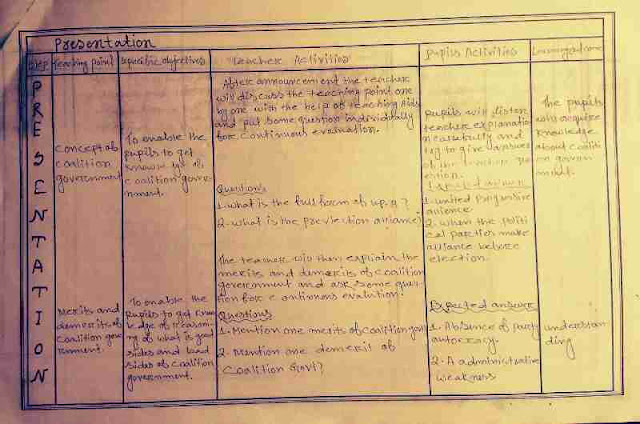 Presentation
Step
Teaching point
Specific objectives
Teacher Activities
Pupils Activities
PRESENTATION
Concept of
coalition
government
To enable the
pupils to get
knowledge of
coalition gover-
nment.
After announcement the teacher
will discuss the teaching point one
by one with the help of teaching Aids
and put some question individually
for continuous evaluation.
Questions
1. what is the full form of u.p.a ?
2. what is the alliance?
Pupils will listen
teacher explanation
carefully and
try to give answer
of the
Expected answer
1. united progressive
alience
2. when the politi
cal parties make
alliance before
election.
The pupils
will acquire
knowledge
about coaliti
on govern
ment.
Merits and
demerits of
coalition gove
rnment.
To enable the
pupils to get know
ledge of reasoni
ng of what is good
sides and bad
sides of coalition
government.
The teacher will then explain the
merits and demerits of coalition
government and ask some ques
tion for continous evalution.
Questions
1. Mention one merits of coalition govt
2. Mention one demerit of
Coalition Govt?
Expected answer
1. Absence of party
autocracy.
2. A administrative
weakness
understan
ding